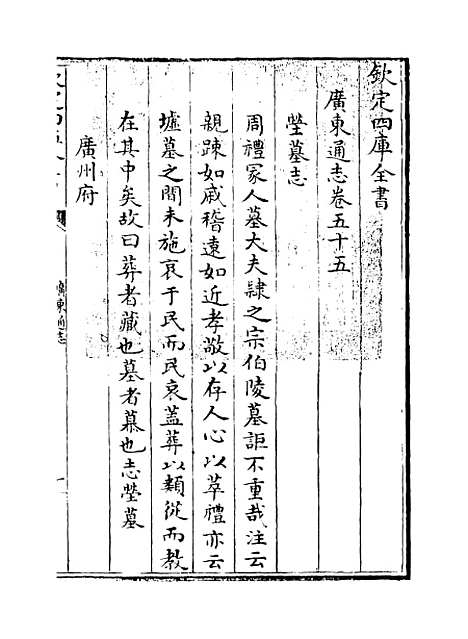 欽定四庫全書
廣東通志卷五十五
塋墓志
周禮冢人墓大夫隷之宗伯陵墓詎不重哉注云
親踈如戚稽遠如近孝敬以存人心以萃禮亦云
墟墓之間未施哀于民而民哀蓋葬以類從而教
在其中矣故曰葬者藏也墓者慕也志塋墓
廣州府
廣東通志